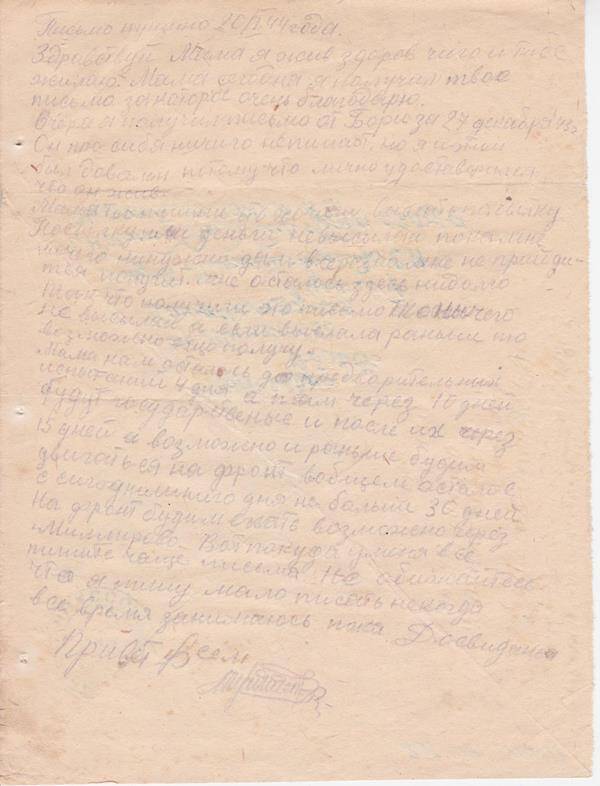 Письмо пущено 20/I.44 года.
Здравствуй Мама я жив здоров чиго и тибе
жилаю. Мама сегодня я получил твое
письмо за которое очень благодарю.
Вчера я получил письмо от Бори за 27 декабря 43 г.
Он про сибя ничиго непишет, но я и этим
был доволен потому что лично удостоверился
что он жив.
Мама ты пишеш что хочеш выслать посылку
Посылку или деньги невысилай пока мне
ничего ненужно да и всеравно мне не прийди-
тся получить мне осталось здесь нидолго
Так что получиш это письмо то ничего
не высылай а если выслала раньше то
возможно ищо получу.
Мама нам осталось до предварительных
испытаний 4 дня а там через 10 дней
будут государственые и после их через
15 дней а возможно и раньше будим
двигаться на фронт вобщем осталос
с сигодняшниго дня не больше 30 дней
На фронт будим ехать возможно через
Миллирово. Вот покуда у меня все
пишите чаще письма. Не обижайтесь
что я пишу мало писать некогда
все время занимаюсь пока Досвидания
Привет Всем